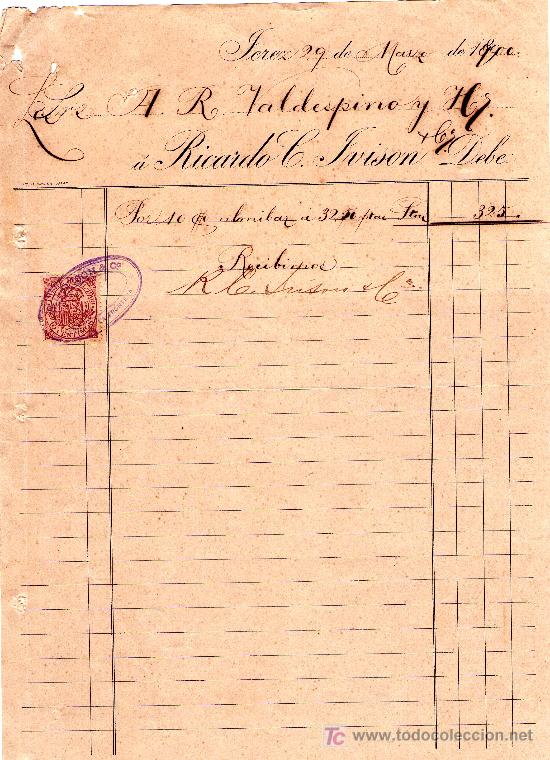 Jerez 29 de Marzo de 1900
A. R. Valdespino y Hº
á Ricardo C. Ivison & Cª Debe
Por 10 @ á 32.50 ptas 325
Recibimos
R. C. Ivison & Cª
TC www.todocoleccion.net